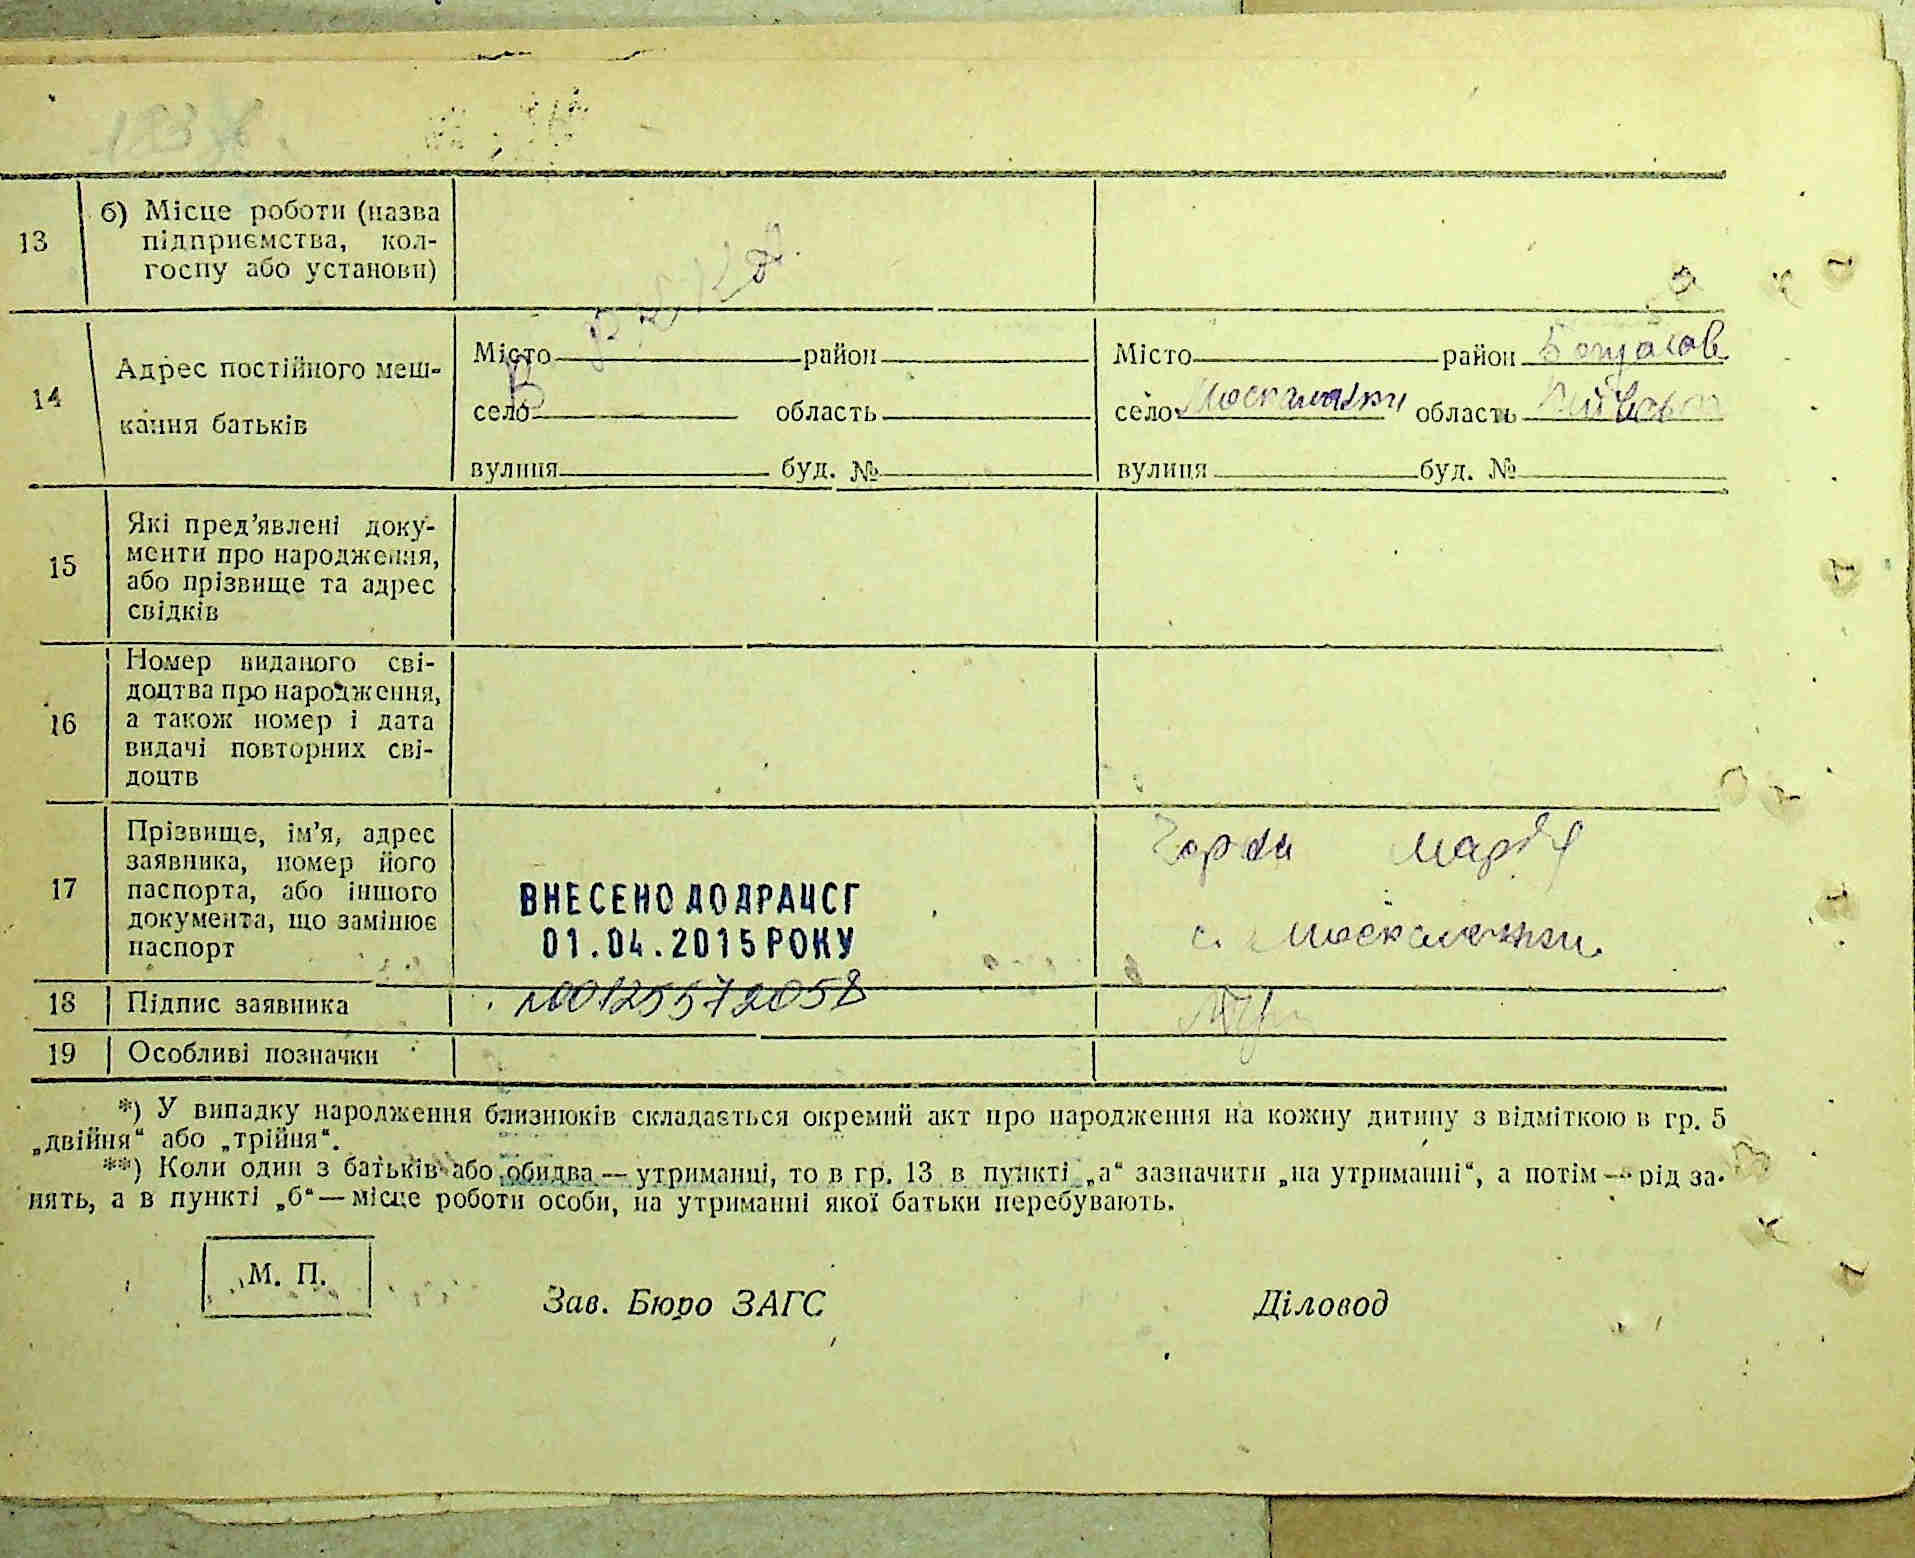 13
б) Місце роботи (назва
підприємства, кол-
госпу або установи)
14
Адрес постійного меш-
кання батьків
Місто район
село область
вулиця буд. №
Місто район
село Москаленки область
вулиця буд. №
15
Які пред’явлені доку-
менти про народження,
або прізвище та адрес
свідків
16
Номер виданого сві-
доцтва про народження,
а також номер і дата
видачі повторних сві-
доцтв
17
Прізвище, ім’я, адрес
заявника, номер його
паспорта, або іншого
документа, що замінює
паспорт
ВНЕСЕНО ДО ДРАЦСГ
01.04.2015 РОКУ
Марія
с. Москаленки
18 Підпис заявника
00125572058
19 Особливі позначки
*) У випадку народження близнюків складається окремий акт про народження на кожну дитину з відміткою в гр. 5
„двійня“ або „трійня“.
**) Коли один з батьків або обидва — утриманці, то в гр. 13 в пункті „а“ зазначити „на утриманні“, а потім — рід за-
нять, а в пункті „б“ — місце роботи особи, на утриманні якої батьки перебувають.
М. П.
Зав. Бюро ЗАГС
Діловод